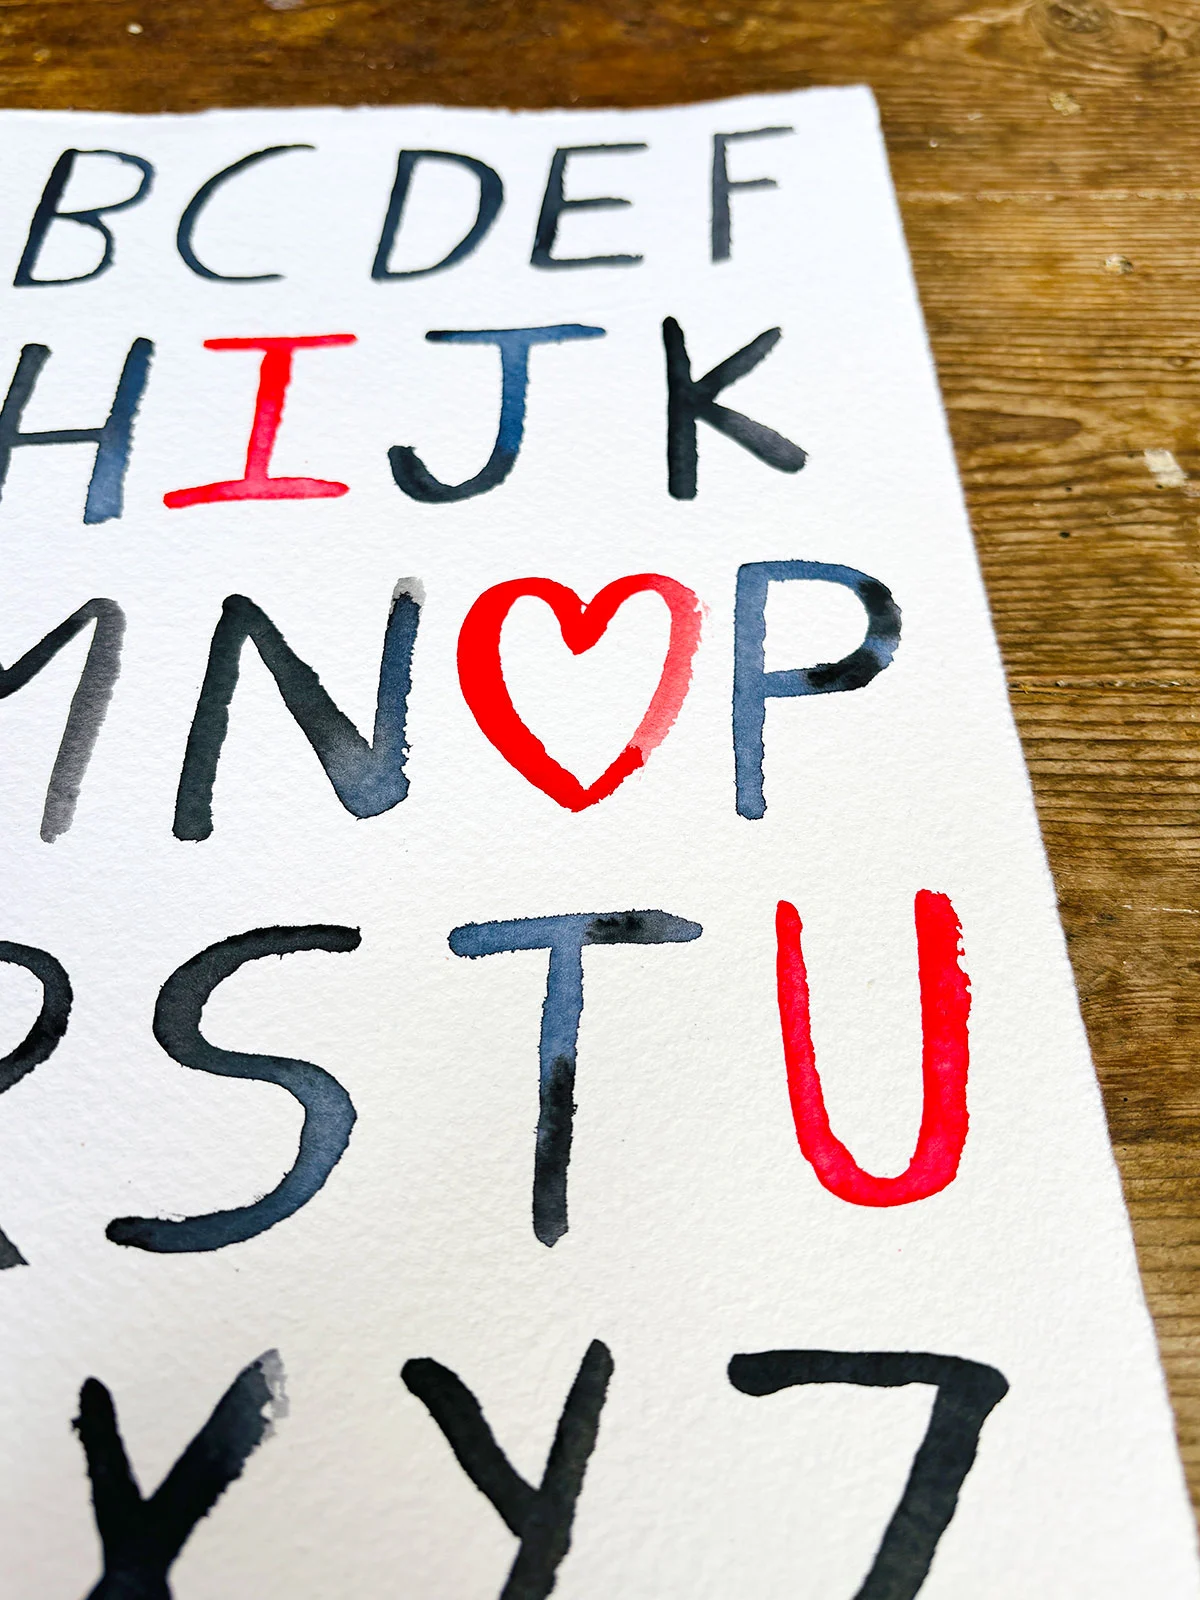 B C D E F
H I J K
M N ♥ P
R S T U
X Y Z